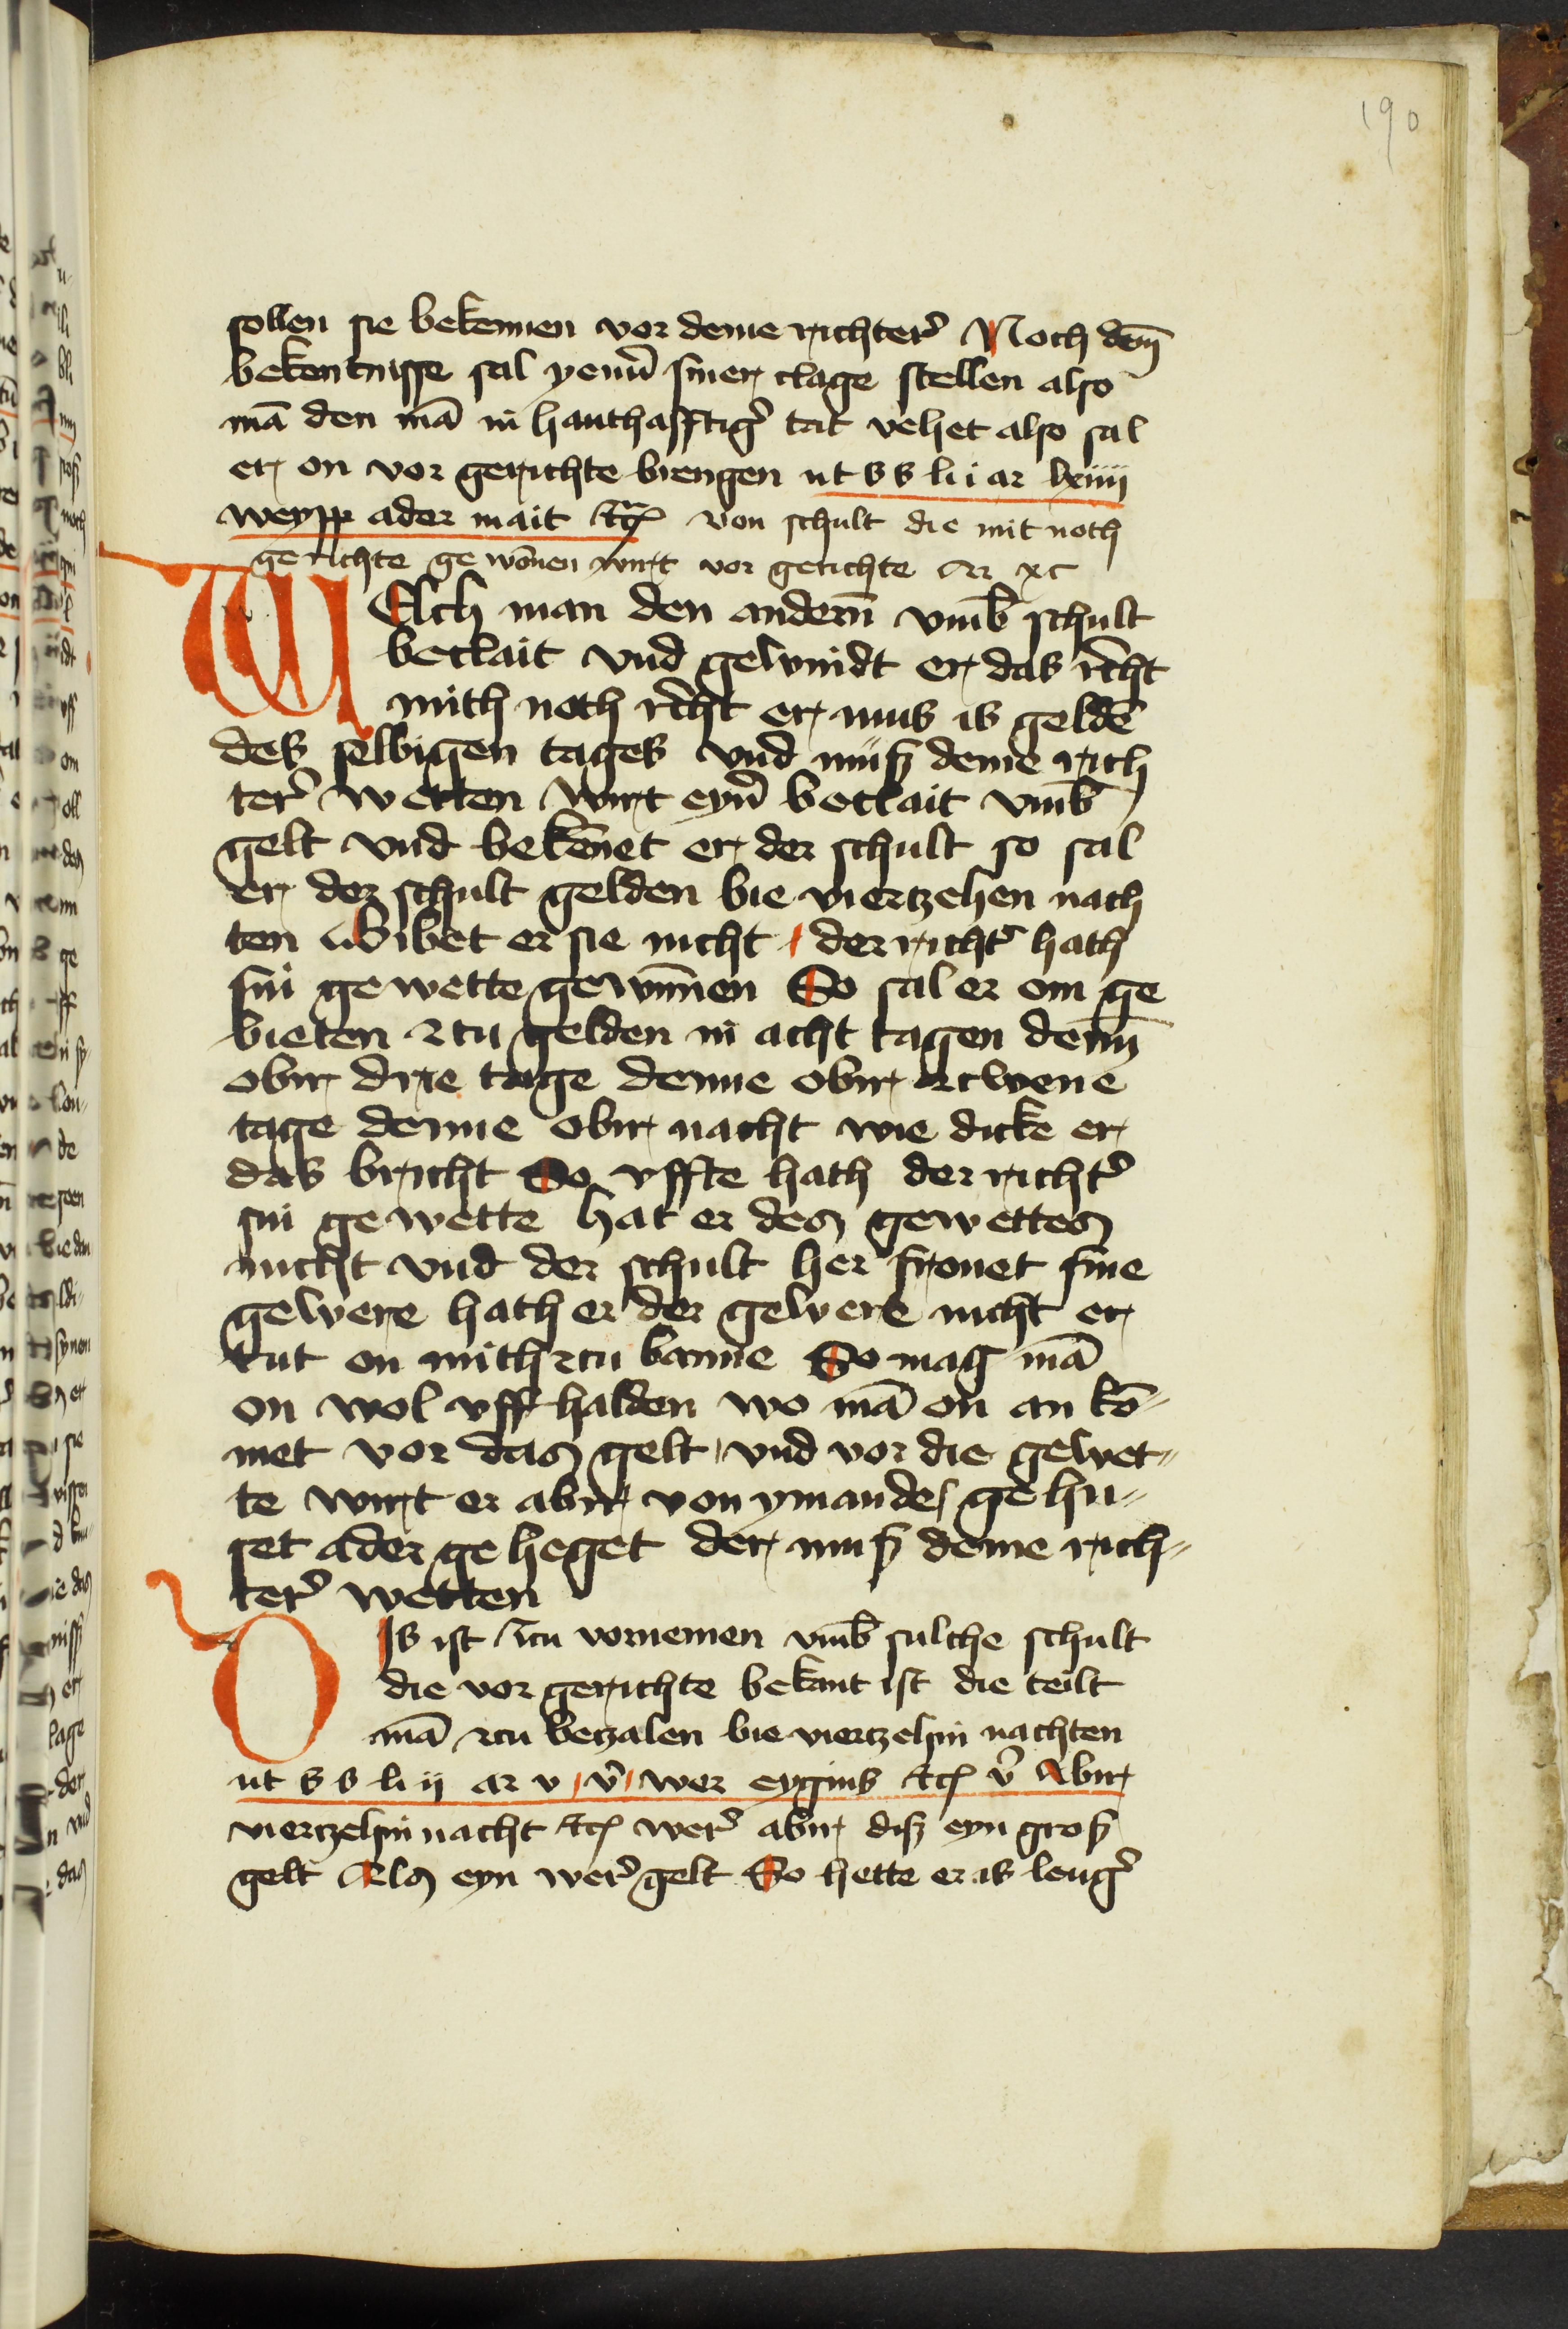 190
sollen sie bekennen vor deme richter̉ Noch dem̄
bekentnisse sal yenn̉ siner clage stellen also
mā den mā in hanthafftig̉ tat vehet also sal
er on vor gerichte brengen ut s s li i ar lxiiii
weypp ader mait etc̄ von schult die mit noth
gerichte gewōnen wirt vor gerichte Ar xc
WElch man den andern̄ vmb̄ schult
beclait vnd gewindt er das rēcht
mith noth rēcht er mus is geldē
des selbigen tages vnd muß deme rich
ter̉ wetten Wirt eyn̉ beclait vmb̄
gelt vnd bekēnet er der schult so sal
er der schult gelden bie viertzehen nach
ten Gibet er sie nicht der richt̉ hath
sin gewette gewūnen So sal er om ge
bieten zcu gelden in acht tagen denn̄
obir drie tage denne obir zcwene
tage denne obir nacht wie dicke er
das bricht So vffte hath der richt̉
sin gewette hat er des gewettes
nicht vnd der schult her fronet sine
gewere hath er der gewere nicht er
tut on mith zcu banne So mag mā
on wol vff halden wo mā on an kō-
met vor das gelt vnd vor die gewet-
te wirt er abir von ymandes gehu-
set ader geheget der muß deme rich-
ter̉ wetten
DIs ist zcu vornemen vmb̄ sulche schult
die vor gerichte bekant ist die teilt
mā zcu betzalen bie viertzehin nachten
ut s s li ii ar v v̉ wer eygins etc v̉ Abir
viertzehin nacht etc wer̉ abir diß eyn groß
gelt Als eyn wer̉gelt So hette er is leng̉